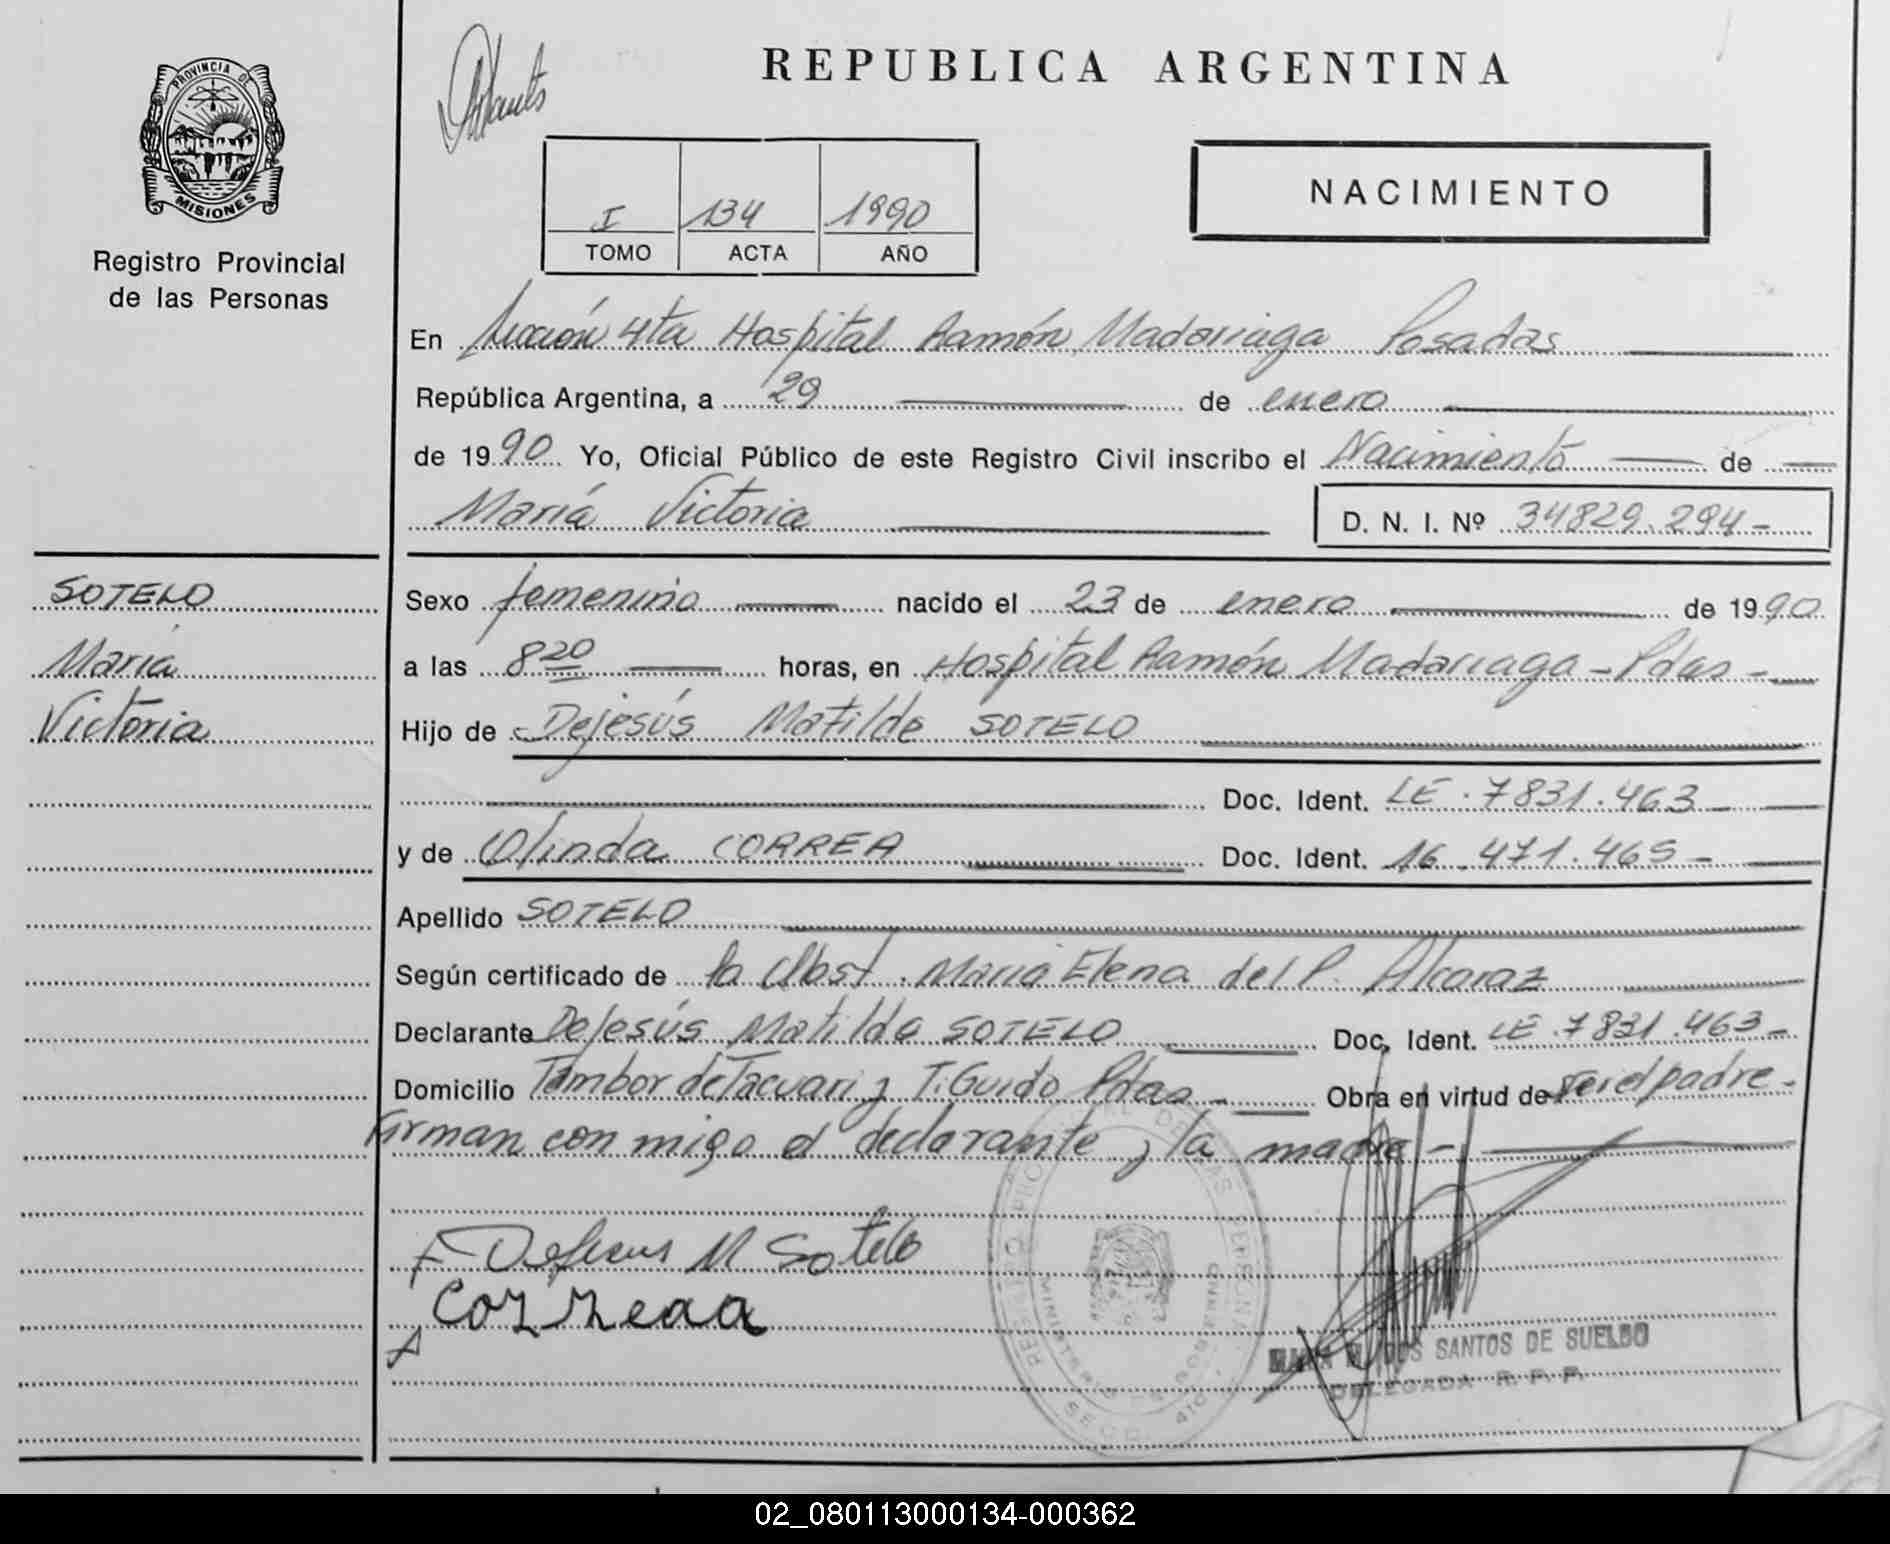 REPUBLICA ARGENTINA
PROVINCIA DE
MISIONES
Registro Provincial
de las Personas
I 134 1990
TOMO ACTA AÑO
NACIMIENTO
En Sección 4ta Hospital Ramón Madariaga Posadas
República Argentina, a 29 de enero
de 1990 Yo, Oficial Público de este Registro Civil inscribo el Nacimiento de
María Victoria D. N. I. Nº 34829.294-
SOTELO
María
Victoria
Sexo femenino nacido el 23 de enero de 1990
a las 8 20 horas, en Hospital Ramón Madariaga - Pdas -
Hijo de Dejesús Matilde SOTELO
Doc. Ident. LE. 7831.463
y de Olinda CORREA Doc. Ident. 16.471.465-
Apellido SOTELO
Según certificado de la Obst. María Elena del P. Alcaraz
Declarante Dejesús Matilde SOTELO Doc. Ident. LE. 7831.463-
Domicilio Tambor de Tacuari y T. Guido Pdas - Obra en virtud de ser el padre -
Firman conmigo el declarante y la madre -
Dejesus M Sotelo
Correaa
REGISTRO PROVINCIAL DE LAS PERSONAS
MINISTERIO DE GOBIERNO
SANTOS DE SUELDO
DELEGADA R. P. P.
02_080113000134-000362